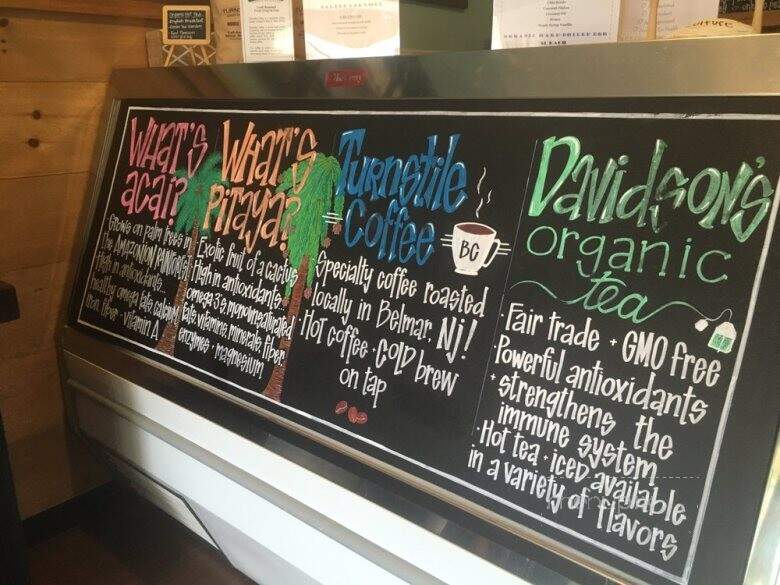 WHAT'S
acai?
Grows on palm trees in
The AMAZONIAN RAINFOREST
High in antioxidants.
healthy omega fats, calcium
iron, fiber · vitamin A
WHAT'S
PITAYA?
Exotic fruit of a cactus
High in antioxidants
omega 3's, monounsaturated
fats, vitamins, minerals, fiber
enzymes · magnesium
Turnstile
Coffee
BC
Specialty coffee roasted
locally in Belmar, NJ!
Hot coffee · COLD brew
on tap
Davidson's
organic
tea
· Fair trade · GMO free
· Powerful antioxidants
· strengthens the
immune system
· Hot tea · iced available
in a variety of flavors